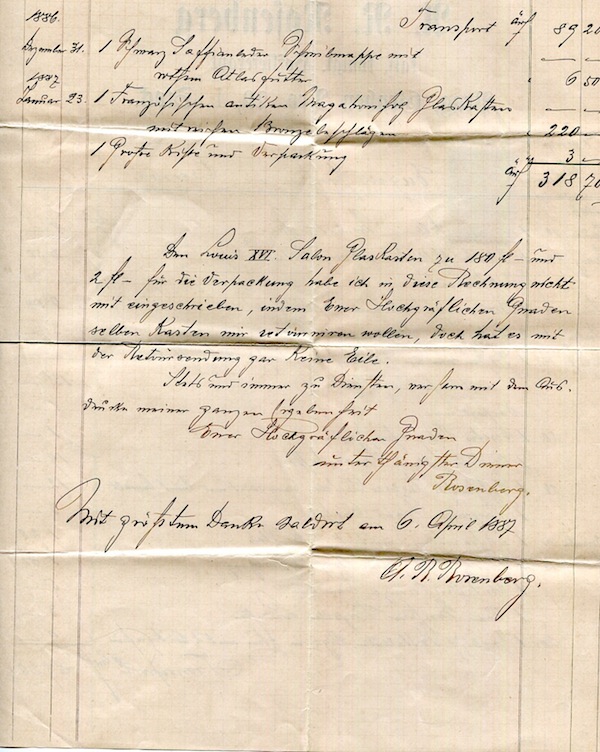 1886. Transport öwf 89 20
Dezember 31. 1 Schwarz Saffianleder Schreibmappe mit — —
1887 rothem Atlasfutter " 6 50
Januar 23. 1 Französischen antiken Mahagoniholz Glaskasten — —
mit reichen Bronzebeschlägen " 220 —
1 Große Kiste und Verpackung " 3 —
öwf 318 70
Den Louis XVI. Salon Glaskasten zu 180 fl – und
2 fl – für die Verpackung habe ich in diese Rechnung nicht
mit eingeschrieben, indem Euer Hochgräflichen Gnaden
selben Kasten mir retourniren wollen, doch hat es mit
der Retoursendung gar keine Eile.
Stets und immer zu Diensten, mit dem Aus-
drucke meiner ganzen Ergebenheit
Euer Hochgräflichen Gnaden
unterthänigster Diener
Rosenberg.
Mit größtem Danke saldirt am 6. April 1887
A. R. Rosenberg.